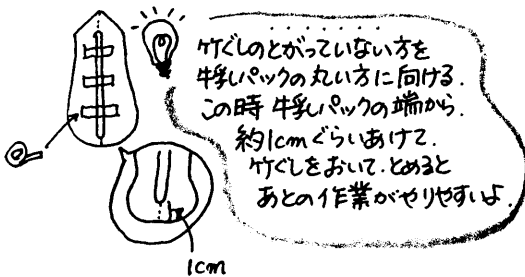 竹ぐしのとがっていない方を
牛乳パックの丸い方に向ける.
この時 牛乳パックの端から.
約1cmぐらいあけて.
竹ぐしをおいて.とめると
あとの作業がやりやすいよ.
1cm